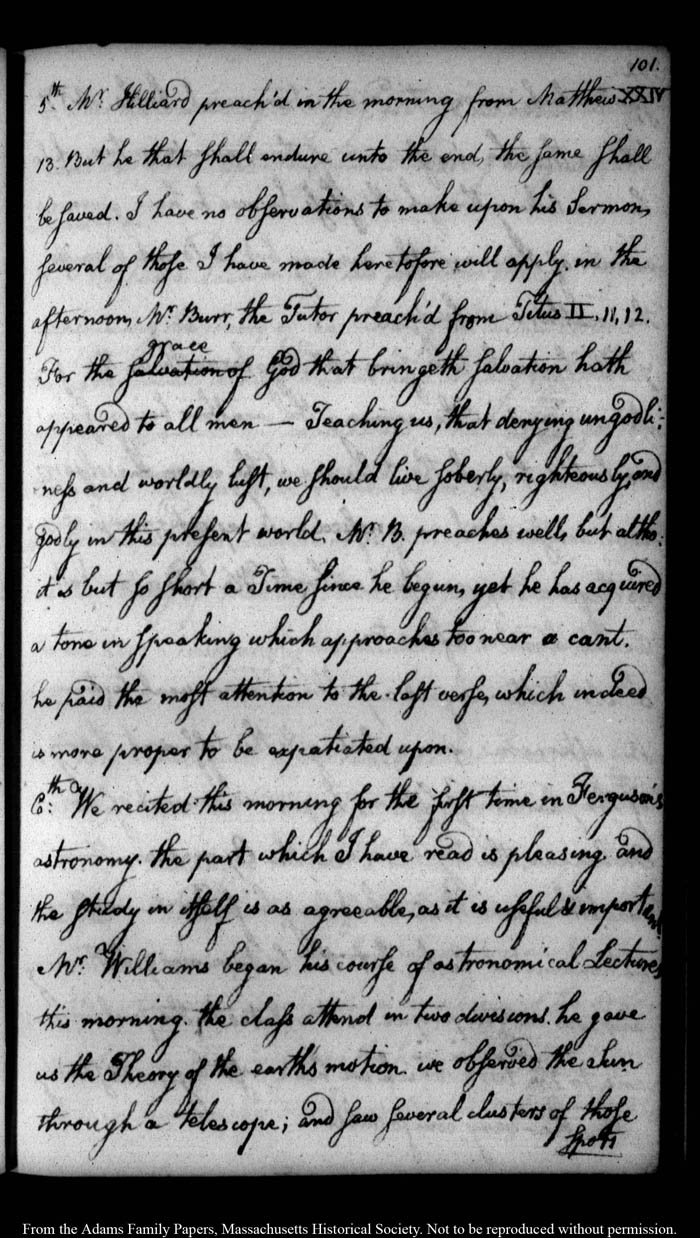 101.
5th Mr. Hilliard preach'd in the morning from Matthew XXIV
13. But he that shall endure unto the end, the same shall
be saved. I have no observations to make upon his Sermon,
several of those I have made heretofore will apply. in the
afternoon, Mr. Burr, the Tutor preach'd from Titus II. 11, 12.
grace
For the salvation of God that bringeth salvation hath
appeared to all men — Teaching us, that denying ungodli:
ness and worldly lust, we should live soberly, righteously, and
godly in this present world. Mr. B. preaches well, but altho:
it is but so short a Time since he begun, yet he has acquired
a tone in speaking which approaches too near a cant.
he paid the most attention to the last verse, which indeed
is more proper to be expatiated upon.
6th: We recited this morning for the first time in Ferguson's
astronomy. the part which I have read is pleasing and
the study in itself is as agreeable, as it is useful & important.
Mr. Williams began his course of astronomical Lectures
this morning. the class attend in two divisions. he gave
us the Theory of the earth's motion. we observed the Sun
through a telescope; and saw several clusters of those
spots
From the Adams Family Papers, Massachusetts Historical Society. Not to be reproduced without permission.